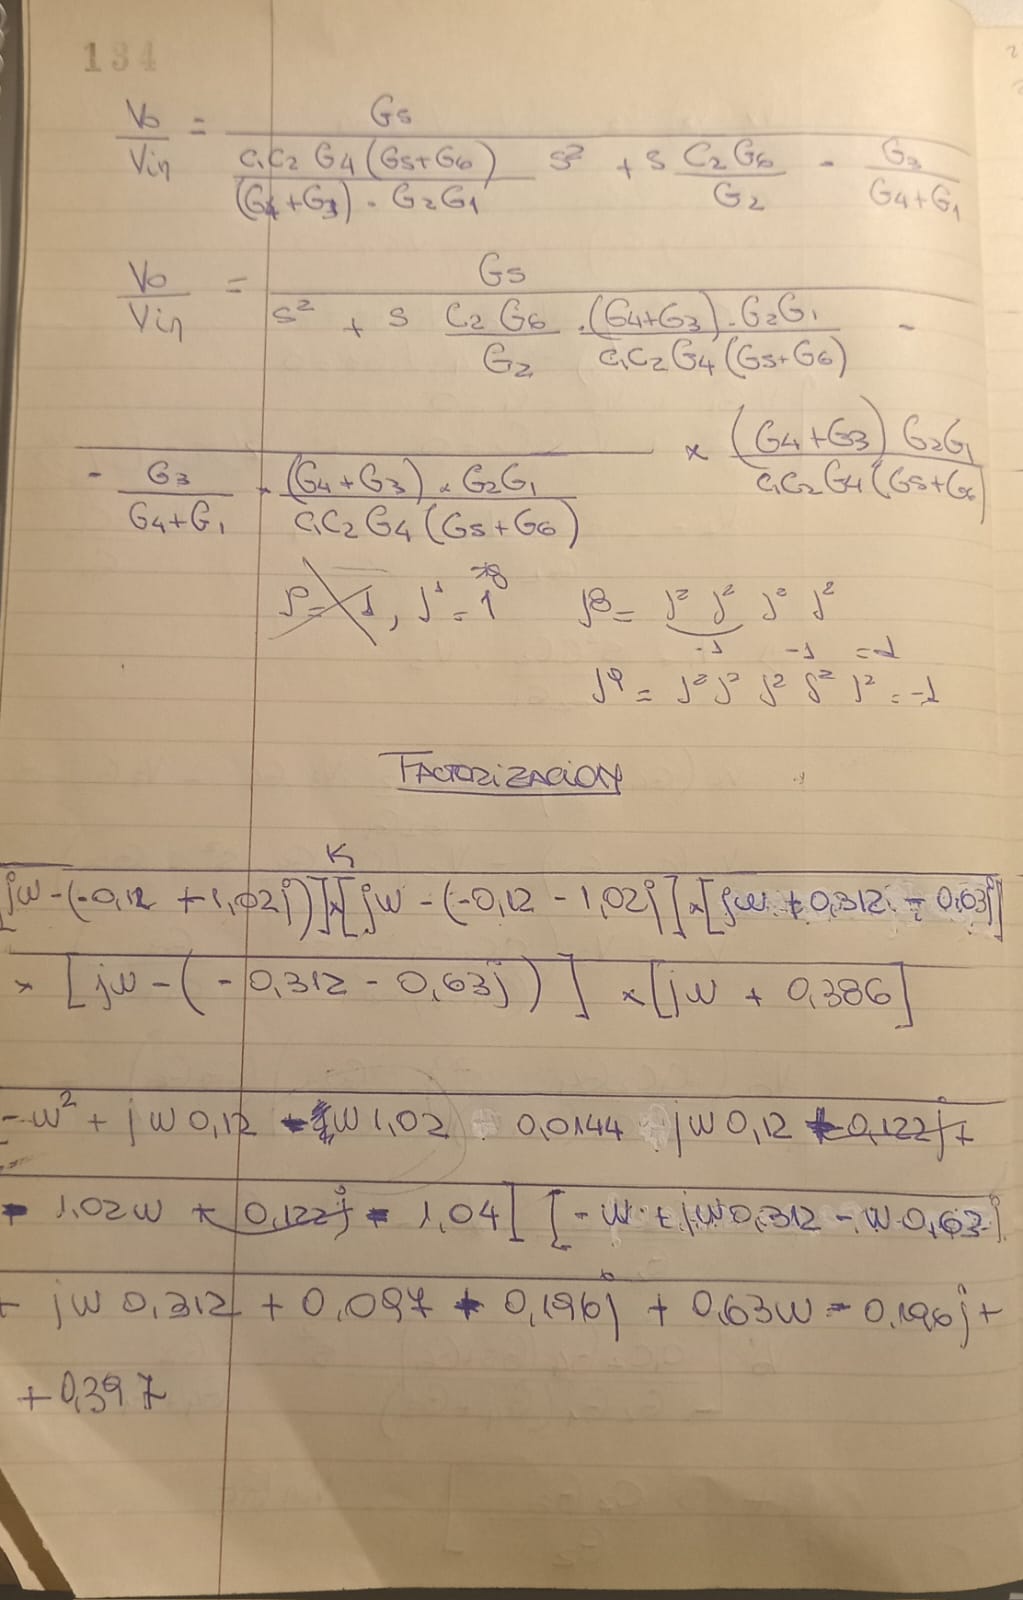 134
Vo/Vin = G5 / (C1C2 G4(G5+G6)/((G4+G3) · G2G1) s² + s C2G6/G2 - G3/(G4+G1))
Vo/Vin = G5 / (s² + s C2 G6/G2 · (G4+G3) · G2G1/(C1C2G4(G5+G6)) -
- G3/(G4+G1) × (G4+G3) × G2G1/(C1C2G4(G5+G6)) × (G4+G3) G2G1/(C1C2G4(G5+G6)
j8= j² j² j² j²
-1 -1 =1
j9 = j² j² j² j² j² = -1
FACTORIZACION
K
[jw-(-0,12 +1,02j)]×[jw-(-0,12 - 1,02j]×[jw + 0,312 - 0,63j]
× [jw-(-0,312 - 0,63j)] ×[jw + 0,386]
-w² + jw 0,12 w 1,02 0,0144 jw 0,12 0,122j+
1,02w + 0,122j 1,04] [-w + jw0,312 - w 0,63j
+ jw 0,312 + 0,097 + 0,196j + 0,63w - 0,196j +
+ 0,397